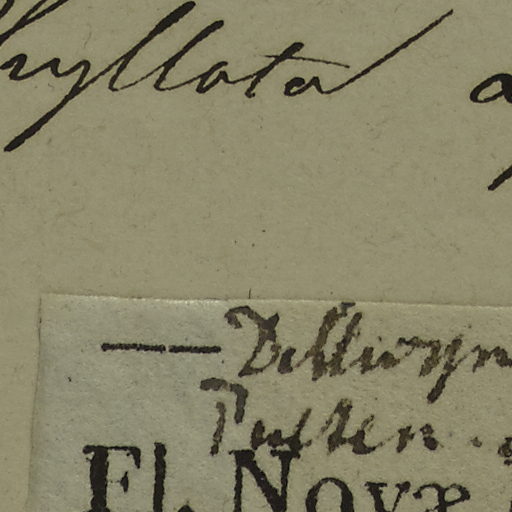 hyllata a
— Dillwyn
Pulten.
Fl. Novæ